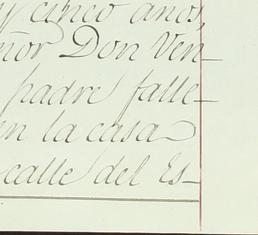 y cinco años,
ñor Don Ven-
padre falle-
en la casa
calle del Es-